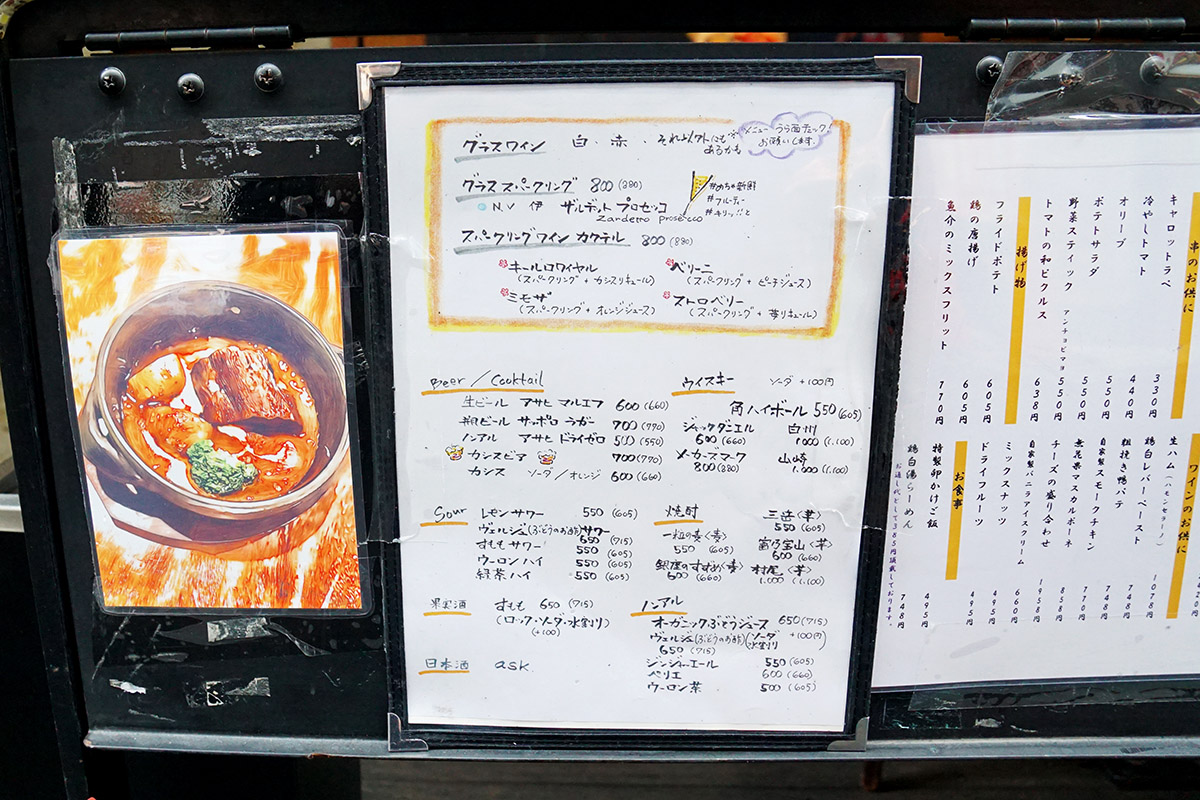 グラスワイン 白・赤・それ以外にもあるかも
メニューうら面チェック!
お願いします。
グラス スパークリング 800(880)
N.V 伊 ザルデット プロセッコ
Zardetto prosecco
#めちゃ新鮮
#フルーティー
#キリッ!!と
スパークリングワイン カクテル 800(880)
キールロワイヤル
(スパークリング+カシスリキュール)
ベリーニ
(スパークリング+ピーチジュース)
ミモザ
(スパークリング+オレンジジュース)
ストロベリー
(スパークリング+苺リキュール)
Beer/Cocktail
生ビール アサヒ マルエフ 600(660)
瓶ビール サッポロ ラガー 700(770)
ノンアル アサヒ ドライゼロ 500(550)
カシスビア 700(770)
カシス ソーダ/オレンジ 600(660)
ウイスキー ソーダ +100円
角ハイボール 550(605)
ジャックダニエル
600(660)
白州
1000(1.100)
メーカースマーク
800(880)
山崎
1.000(1.100)
Sour レモンサワー 550(605)
ヴェルジュ(ぶどうのお酢)サワー
650(715)
すももサワー 550(605)
ウーロンハイ 550(605)
緑茶ハイ 550(605)
焼酎
三岳〈芋〉
550(605)
一粒の麦〈麦〉
550(605)
富乃宝山〈芋〉
600(660)
銀座のすずめ〈麦〉
600(660)
村尾〈芋〉
1.000(1.100)
果実酒 すもも 650(715)
(ロック・ソーダ・水割り)
(+100)
日本酒 ask
ノンアル
オーガニックぶどうジュース 650(715)
ヴェルジュ(ぶどうのお酢)(ソーダ +100円)
水割り
650(715)
ジンジャーエール 550(605)
ペリエ 600(660)
ウーロン茶 500(605)
串のお供に
キャロットラペ 330円
冷やしトマト 440円
オリーブ 550円
ポテトサラダ 550円
野菜スティック アンチョビマヨ 550円
トマトの和ピクルス 638円
揚げ物
フライドポテト 605円
鶏の唐揚げ 605円
魚介のミックスフリット 770円
ワインのお供に
生ハム(ハモンセラーノ)
鶏白レバーペースト 1078円
粗挽き鴨パテ 748円
自家製スモークチキン 748円
無花果マスカルポーネ 770円
チーズの盛り合わせ 858円
自家製バニラアイスクリーム
ミックスナッツ 660円
ドライフルーツ 495円
お食事
特製卵かけご飯 495円
鶏白湯らーめん 748円
お通し代として385円頂戴しております。